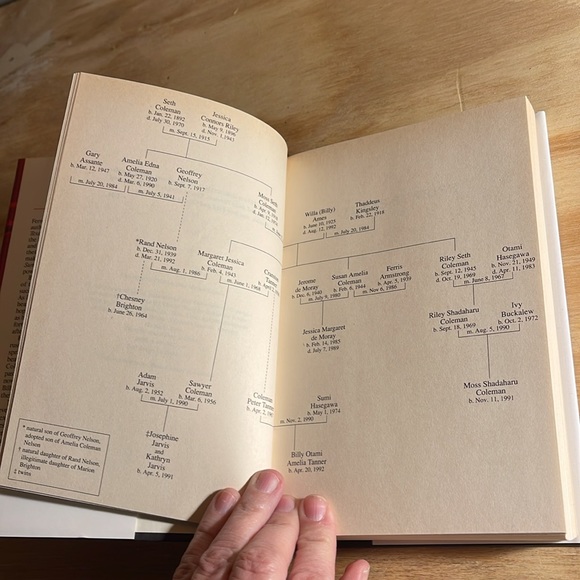 Seth
Coleman
b. Jan. 22, 1892
d. July 30, 1970
Jessica
Connors Riley
b. May 9, 1896
d. Nov. 1, 1941
m. Sept. 15, 1915
Gary
Assante
b. Mar. 12, 1947
Amelia Edna
Coleman
b. May 27, 1920
d. Mar. 6, 1990
Geoffrey
Nelson
b. Sept. 7, 1917
m. July 20, 1984
m. July 5, 1941
Moss Seth
Coleman
Willa (Billy)
Ames
b. June 10, 1925
d. Aug. 12, 1992
Thaddeus
Kingsley
b. Feb. 22, 1918
m. July 20, 1984
*Rand Nelson
b. Dec. 31, 1939
d. Mar. 21, 1992
Margaret Jessica
Coleman
b. Feb. 4, 1943
m. Aug. 1, 1986
m. June 1, 1968
Jerome
de Moray
b. Dec. 6, 1940
Susan Amelia
Coleman
b. Feb. 6, 1944
Ferris
Armstrong
b. Apr. 5, 1939
m. July 9, 1980
m. Nov 6, 1986
Riley Seth
Coleman
b. Sept. 12, 1945
d. Oct. 19, 1969
Otami
Hasegawa
b. Nov. 21, 1949
d. Apr. 11, 1983
m. June 8, 1967
†Chesney
Brighton
b. June 26, 1964
Jessica Margaret
de Moray
b. Feb. 14, 1985
d. July 7, 1988
Riley Shadaharu
Coleman
b. Sept. 18, 1969
Ivy
Buckalew
b. Oct. 2, 1972
m. Aug. 5, 1990
Adam
Jarvis
b. Aug. 2, 1952
Sawyer
Coleman
b. Mar. 6, 1956
m. July 1, 1990
Coleman
Peter Tanner
b. Apr. 2,
Sumi
Hasegawa
b. May 1, 1974
m. Nov. 2, 1990
Moss Shadaharu
Coleman
b. Nov. 11, 1991
‡Josephine
Jarvis
and
Kathryn
Jarvis
b. Apr. 5, 1991
Billy Otami
Amelia Tanner
b. Apr. 20, 1992
* natural son of Geoffrey Nelson,
adopted son of Amelia Coleman
Nelson
† natural daughter of Rand Nelson,
illegitimate daughter of Marion
Brighton
‡ twins